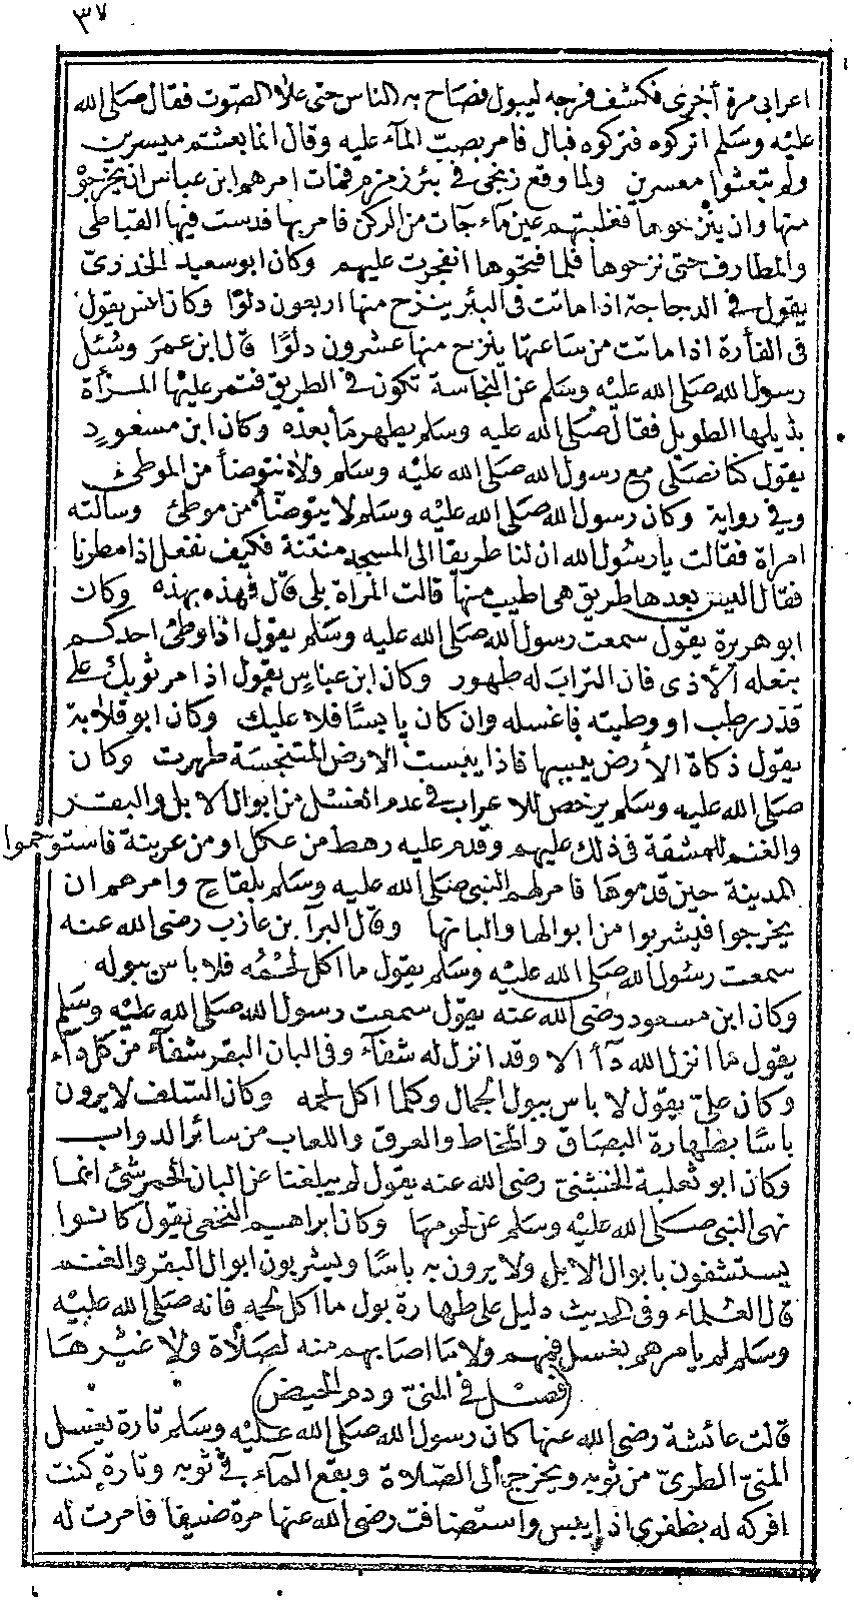 ٣٧
اعرابى مرة أخرى فكشف فرجه ليبول فصاح به الناس حتى علا الصّوت فقال صَلى الله
عليْه وسَلم اتركوه فتركوه فبال فامر بصبّ المآء عليه وقال انما بعثتم ميسرين
ولم تبعثوا معسرين ولما وقع زنجى في بئر زمزم فمات امرهم ابن عباس ان يخرجوْ
منها وان ينزحوها فغلبتهم عين مآء جآت من الركن فامر بها فدست فيها القباطى
والمطارف حتى نزحوها فلما فتحوها انفجرت عليهم وكان ابو سعيد الخدرىّ
يقول في الدجاجة اذا ماتت فى البئر ينزح منها اربعون دلوًا وكان انس يقول
فى الفأرة اذا ماتت من ساعتها ينزح منها عشرون دلوًا قال ابن عمرَ وسُئل
رسول الله صَلى الله عليْه وسَلم عن النجاسة تكون في الطريق فتمر عليْها المرأة
بذيلها الطويل فقال صَلى الله عليه وسَلم يطهره مَا بعدَه وكان ابن مسعودٍ
يقول كنا نصَلى مع رسول الله صَلى الله عليْه وسَلم ولا نتوضأ من الموطئ
وفي رواية وكان رسول الله صَلى الله عليْه وسَلم لا يتوضّأ من موطئ وسألته
امراة فقالت يا رسُول الله ان لنا طريقا الى المسجد منتنة فكيف نفعل اذا مطرنا
فقال اليس بعدها طريق هى اطيب منها قالت المرأة بلى قال فهذه بهذه وكان
ابو هريرة يقول سمعت رسول الله صَلى الله عليه وسَلم يقول اذا وطئ احدكم
بنعله الأذى فان التراب له طهور وكان ابن عباسٍ يقول اذا مر ثوبك على
قذر رطب او وطيته فاغسله وان كان يابسًا فلا عليك وكان ابو قلابة
يقول ذكاة الأرض يبسها فاذا يبست الارض المتنجسَة طهرت وكان
صَلى الله عليه وسَلم يرخص للاعراب فى عدم الغسْل من ابوال الابل والبقر
والغنم للمشقة فى ذلك عليهم وقدم عليه رهط من عكل او من عرينة فاستوخموا
المدينة حين قدموها فامر لهم النبى صَلى الله عليه وسَلم بلقاح وامرهم ان
يخرجوا فيشربوا من ابوالها والبانها وقال البرآ بن عازب رضى الله عنه
سمعت رسُول الله صَلى الله عليْه وسَلم يقول ما اكل لحمُه فلا باس ببوله
وكان ابن مسعود رضى الله عنه يقول سمعت رسول الله صَلى الله عليْه وسَلم
يقول ما انزل الله دآأ الا وقد انزل له شفآء وفى البان البقر شفآء من كل دآء
وكان علىّ يقول لا باس ببول الجمال وكلما اكل لحمه وكان السّلف لا يرون
باسًا بطهارة البصَاق والمخاط والعرق واللعاب من سائر الدواب
وكان ابو ثعلبة الخشنىّ رضى الله عنه يقول لم يبلغنا عن البان الحمر شئ انما
نهى النبى صَلى الله عليْه وسَلم عن لحومها وكان ابراهيم النخعى يقول كانوا
يستشفون بابوال الابل ولا يرون به باسًا ويشربون ابوال البقر والغنم
قال العلماء وفى الحديث دليل على طهارة بول ما اكل لحمه فانه صَلى الله عليْه
وسَلم لم يامرهم بغسل فمهم ولا ما اصابهم منه لصَلاة ولا غيرها
(فصْل في المنىّ ودم الحيض)
قالت عائشة رضى الله عنها كان رسول الله صَلى الله عليْه وسَلم تارة يغسل
المنىّ الطرىّ من ثوبه ويخرج الى الصّلاة وبقع المآء فى ثوبه وتارة كنت
افركه له بظفرى اذا يبس واستضافت رضى الله عنها مرة ضيفا فامرت له